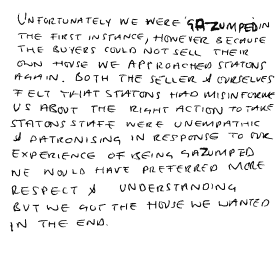 UNFORTUNATELY WE WERE 'GAZUMPED' IN
THE FIRST INSTANCE, HOWEVER BECAUSE
THE BUYERS COULD NOT SELL THEIR
OWN HOUSE WE APPROACHED STATONS
AGAIN. BOTH THE SELLER & OURSELVES
FELT THAT STATONS HAD MISINFORMED
US ABOUT THE RIGHT ACTION TO TAKE
STATONS STAFF WERE UNEMPATHIC
& PATRONISING IN RESPONSE TO OUR
EXPERIENCE OF BEING GAZUMPED
WE WOULD HAVE PREFERRED MORE
RESPECT & UNDERSTANDING
BUT WE GOT THE HOUSE WE WANTED
IN THE END.